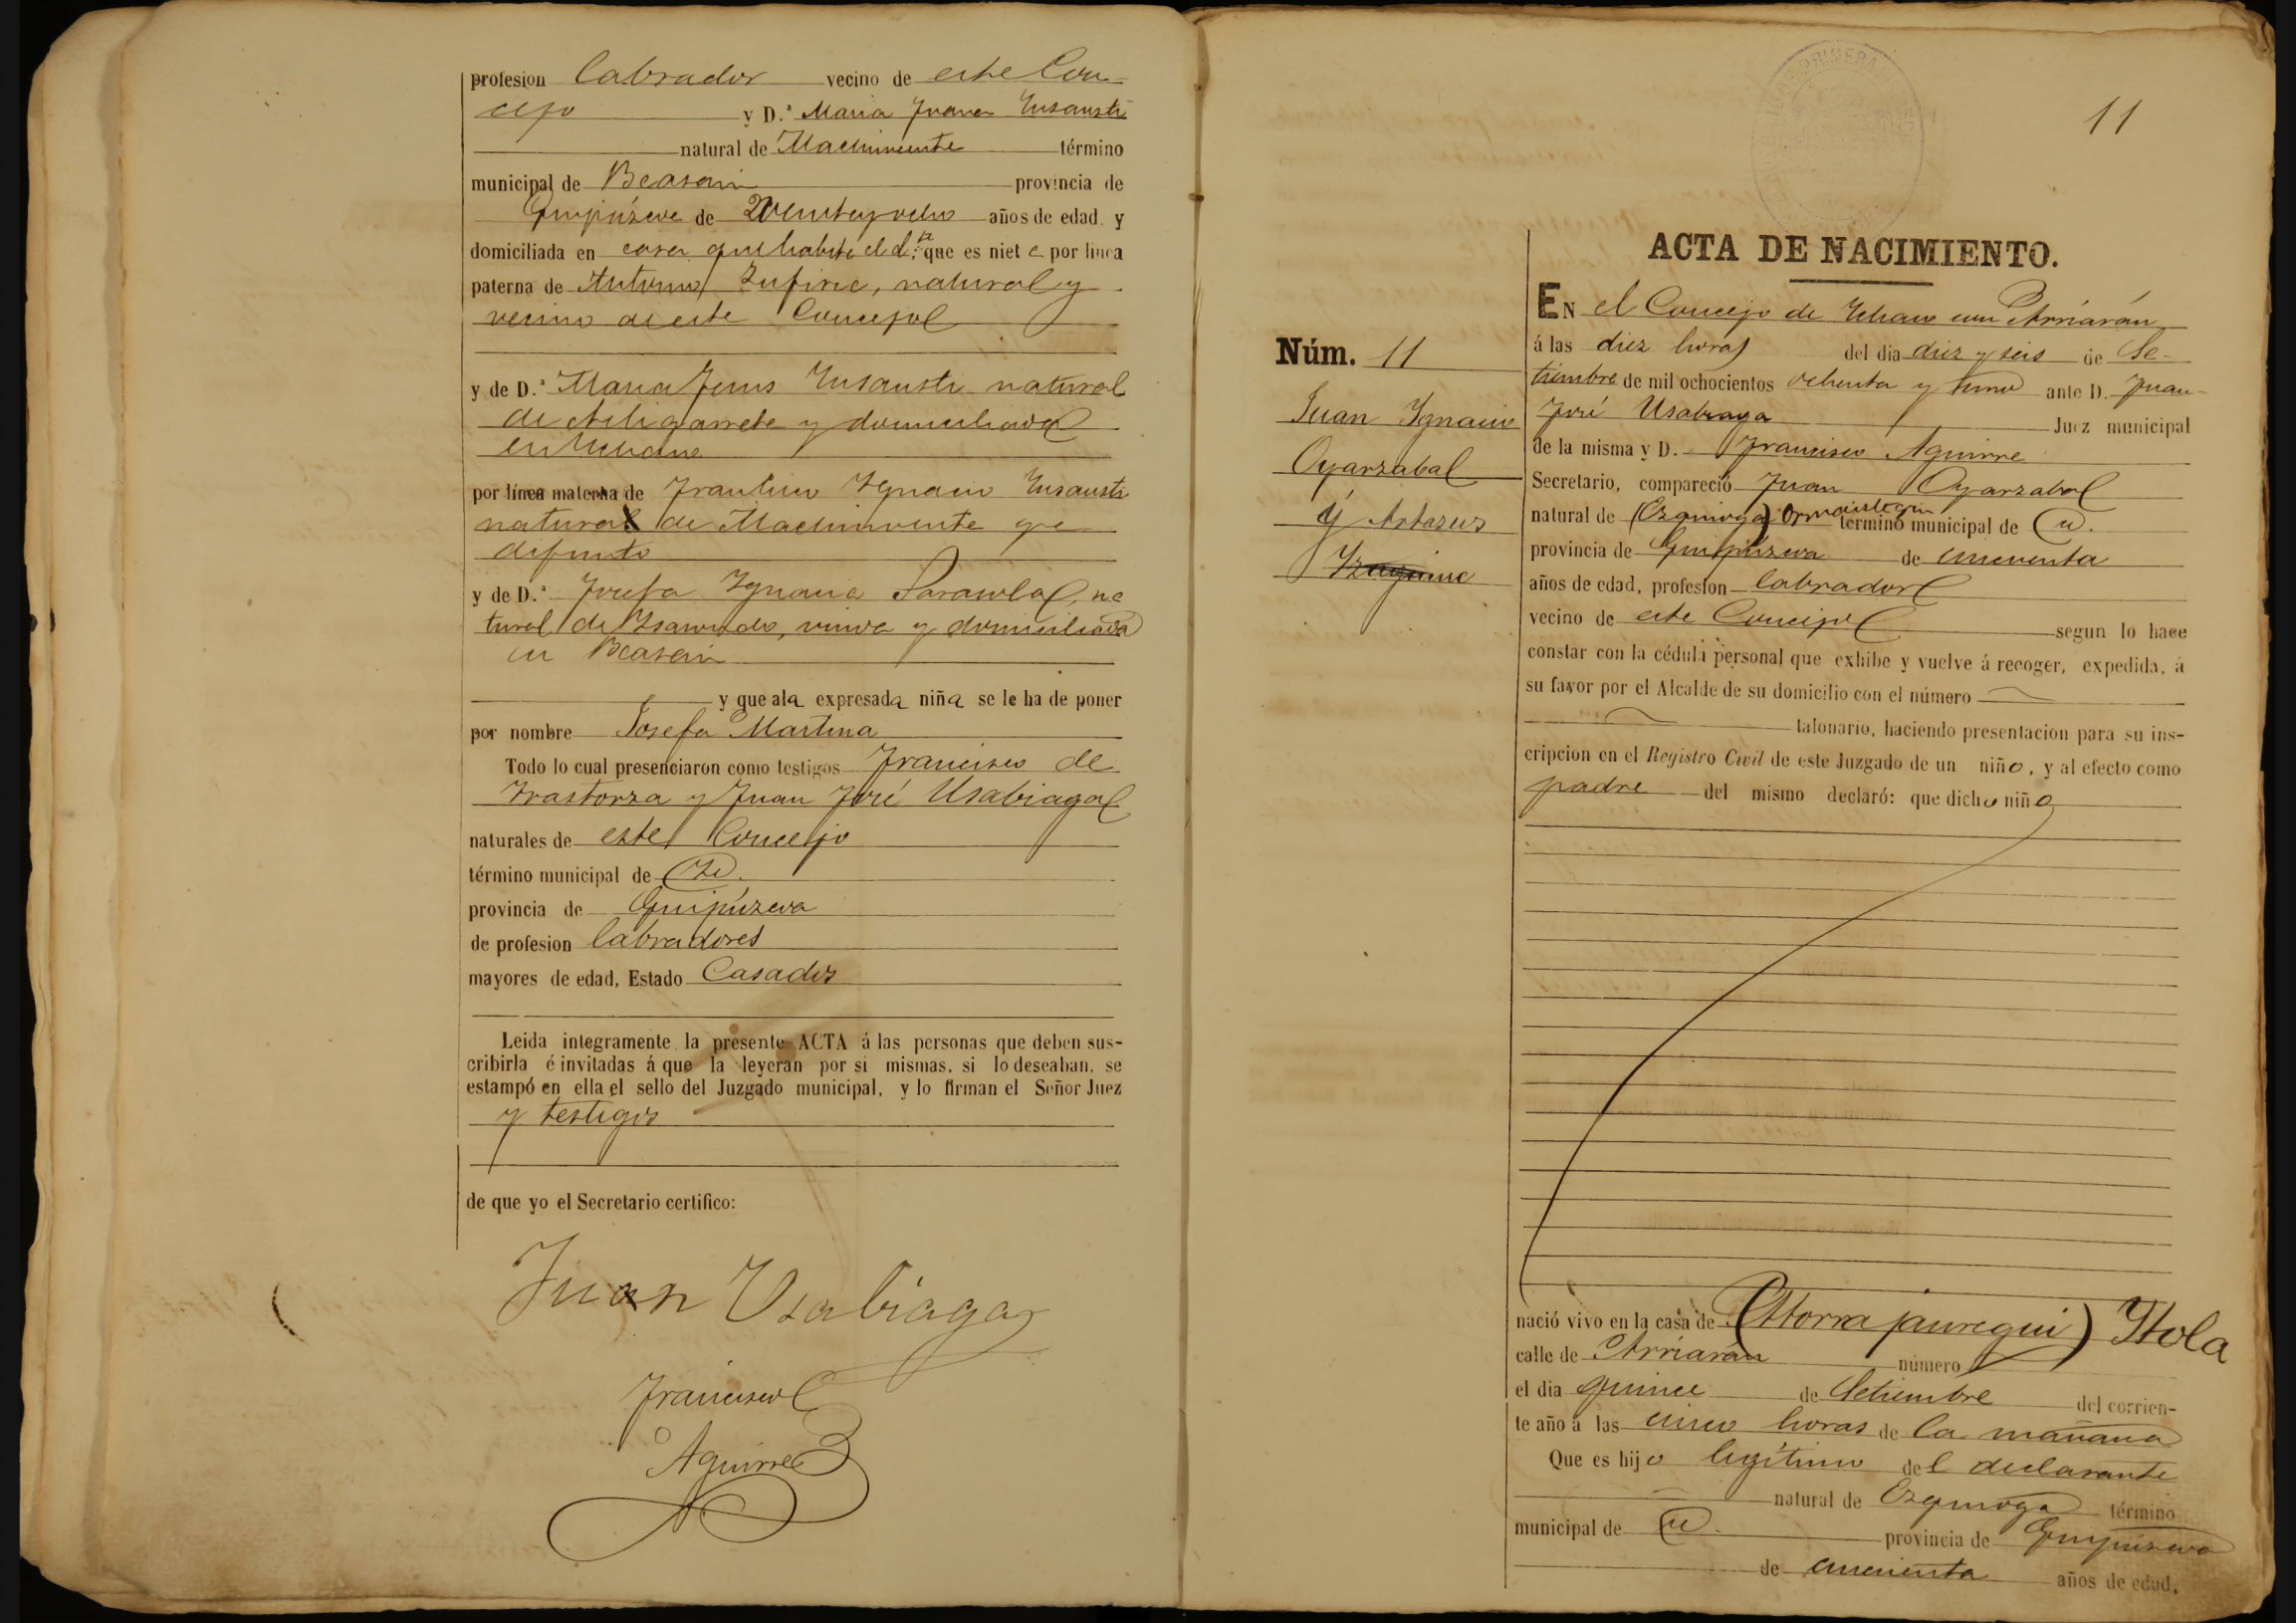 profesion labrador vecino de este Con-
cejo y D.ª Maria Juana Insausti
natural de Machinvente término
municipal de Beasain provincia de
Guipúzcoa de veinteyocho años de edad. y
domiciliada en casa que habita el d.ⁿ que es niet a por linea
paterna de Antonio Zufiria, natural y
vecino de este Concejo
y de D.ª Maria Jesus Insausti natural
de Astigarreta y domiciliada
en Ichaso
por línea materna de Francisco Ignacio Insausti
natural de Machinvente ya
difunto
y de D.ª Josefa Ignacia Sarasola, na
tural de Isasondo, viuda y domiciliada
en Beasain
y que ala expresada niña se le ha de poner
por nombre Josefa Martina
Todo lo cual presenciaron como testigos Francisco de
Irastorza y Juan José Usabiaga
naturales de este Concejo
término municipal de Id.
provincia de Guipúzcoa
de profesion labradores
mayores de edad, Estado Casados
Leida integramente la presente ACTA á las personas que deben sus-
cribirla é invitadas á que la leyeran por si mismas, si lo deseaban, se
estampó en ella el sello del Juzgado municipal, y lo firman el Señor Juez
y testigos
de que yo el Secretario certifico:
Juan Usabiaga
Francisco
Aguirre
11
ACTA DE NACIMIENTO.
Núm. 11
Juan Ignacio
Oyarzabal
y
EN el Concejo de Ichaso con Arriarán
á las diez horas del dia diez y seis de Se-
tiembre de mil ochocientos ochenta y uno ante D. Juan
José Usabiaga Juez municipal
de la misma y D. Francisco Aguirre
Secretario, compareció Juan Oyarzabal
natural de (Ezquioga) Ormaiztegui término municipal de id.
provincia de Guipúzcoa de cincuenta
años de edad, profesion labrador
vecino de este Concejo segun lo hace
constar con la cédula personal que exhibe y vuelve á recoger, expedida, á
su favor por el Alcalde de su domicilio con el número
talonario, haciendo presentacion para su ins-
cripcion en el Registro Civil de este Juzgado de un niño, y al efecto como
padre del mismo declaró: que dicho niño
nació vivo en la casa de jauregui) Itola
calle de Arriarán número
el dia quince de Setiembre del corrien-
te año á las cinco horas de la mañana
Que es hijo legítimo del declarante
natural de Ezquioga término
municipal de id. provincia de Guipúzcoa
de cincuenta años de edad,